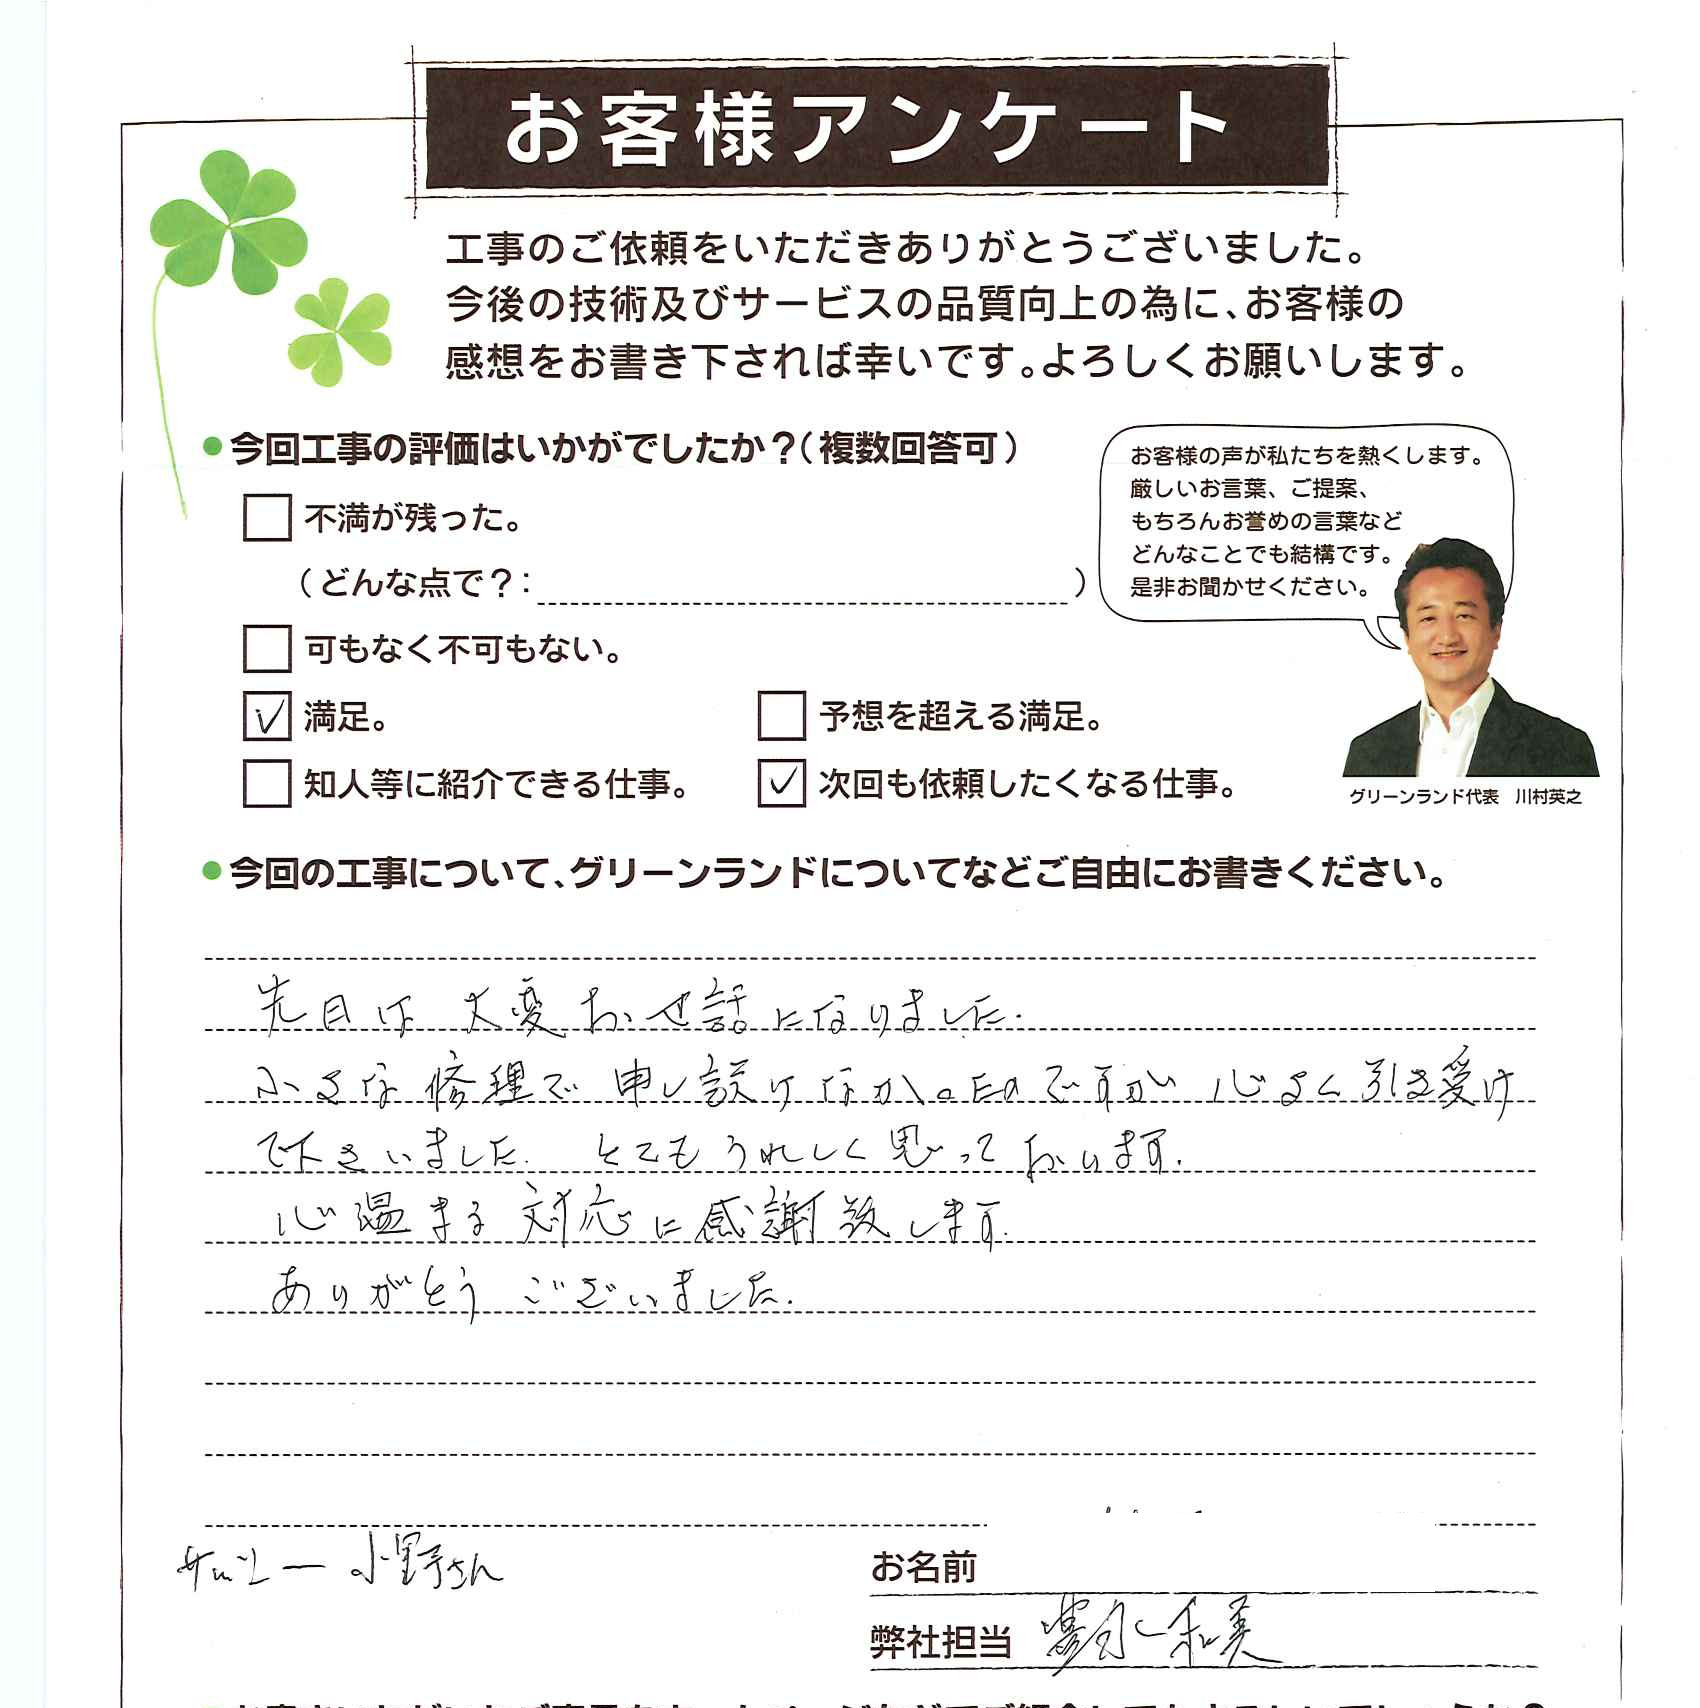 お客様アンケート
工事のご依頼をいただきありがとうございました。
今後の技術及びサービスの品質向上の為に、お客様の
感想をお書き下されば幸いです。よろしくお願いします。
●今回工事の評価はいかがでしたか？（複数回答可）
不満が残った。
（どんな点で？：　）
可もなく不可もない。
満足。
予想を超える満足。
知人等に紹介できる仕事。
次回も依頼したくなる仕事。
お客様の声が私たちを熱くします。
厳しいお言葉、ご提案、
もちろんお誉めの言葉など
どんなことでも結構です。
是非お聞かせください。
グリーンランド代表　川村英之
●今回の工事について、グリーンランドについてなどご自由にお書きください。
先日は 大変おせ話になりました.
小さな修理で 申し訳けなかったのですが 心よく引き受け
で下さいました. とてもうれしく思っております.
心温まる対応に感謝致します.
ありがとう ございました.
小野さん
お名前
弊社担当
和美